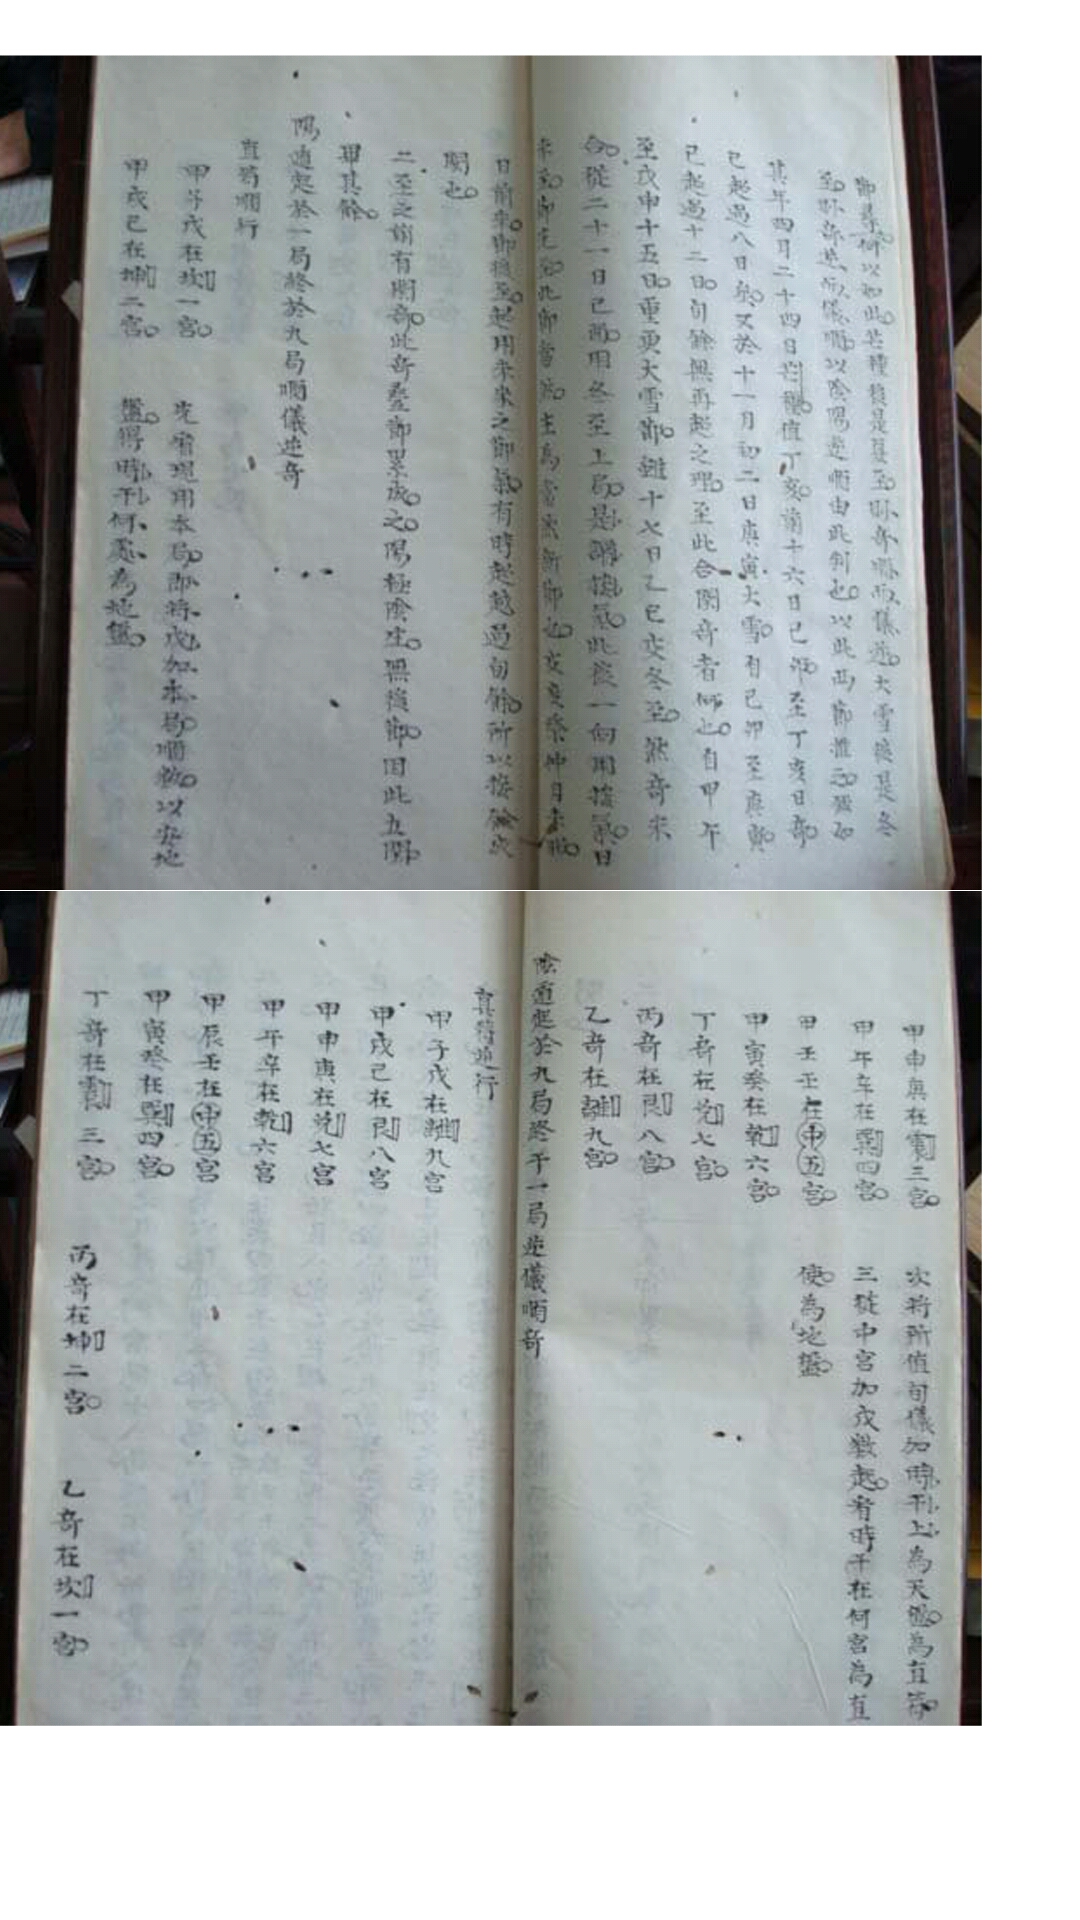 節尋何以如此芒種後是夏至則奇順而儀逆大雪後是冬
至則奇逆而儀順以陰陽逆順由此判也以此兩節準之
某年四月二十四日芒種值丁亥前十六日己卯至丁亥日奇
已起過八日矣又於十一月初二日庚寅大雪自己卯至庚寅
已起過十二日旬餘無再起之理至此合閏奇者何也自甲午
至戊申十五日重更大雪節雖十七日乙巳交冬至然奇未
合從二十一日己酉用冬至上局是謂接氣此後一向用接氣日
未至節先至此節當
日前來節後至起用未來之節氣有時起越過旬餘所以接
閏也
二至之前有閏奇此奇叠節累成之陽極陰生無後節因此立閏
其餘
陽遁起於一局終於九局順儀逆奇
直符順行
甲子戊在坎一宮 先看現用本局即將戊加本局順數以安地
甲戌己在坤二宮 盤得時干何處為地盤
甲申庚在震三宮 次將所值旬儀加時干上為天盤為直符
甲午辛在巽四宮 三從中宮加戊數起看時干在何宮為直
甲壬壬在中五宮 使為地盤
甲寅癸在乾六宮
丁奇在兌七宮
丙奇在艮八宮
乙奇在離九宮
陰遁起於九局終于一局逆儀順奇
直符逆行
甲子戊在離九宮
甲戌己在艮八宮
甲申庚在兌七宮
甲午辛在乾六宮
甲辰壬在中五宮
甲寅癸在巽四宮
丁奇在震三宮 丙奇在坤二宮 乙奇在坎一宮